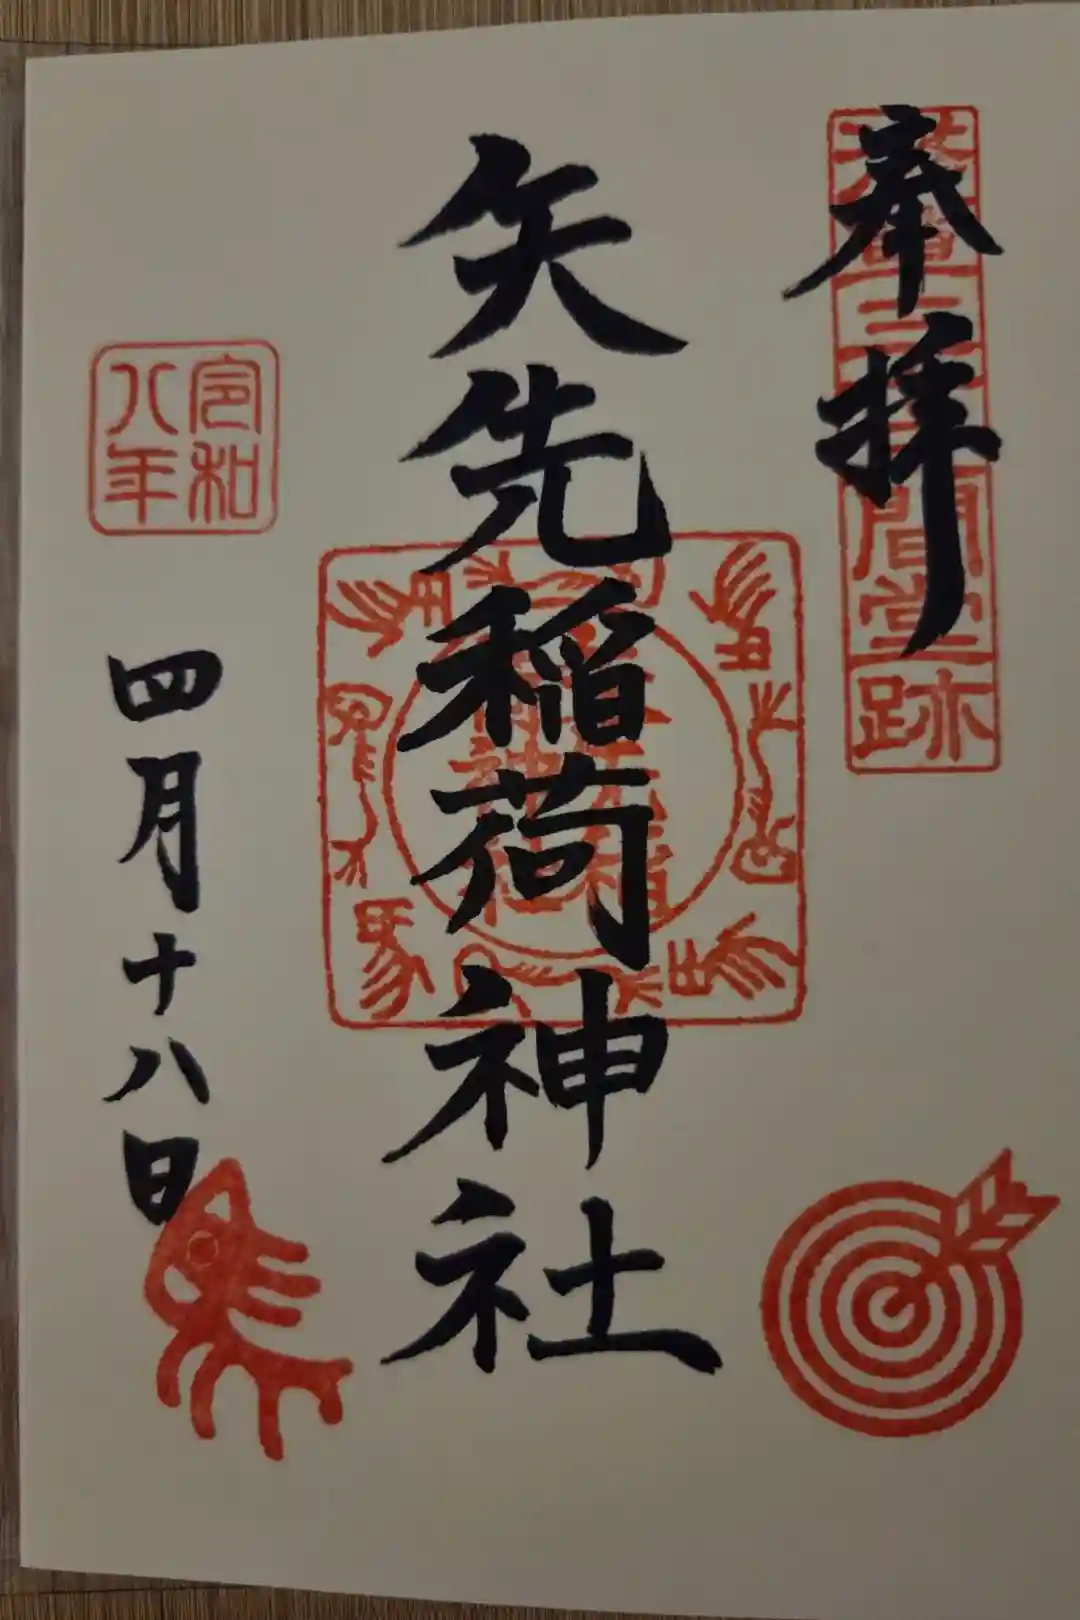 奉拝
浅草三十三間堂跡
矢先稲荷神社
令和八年
四月十八日